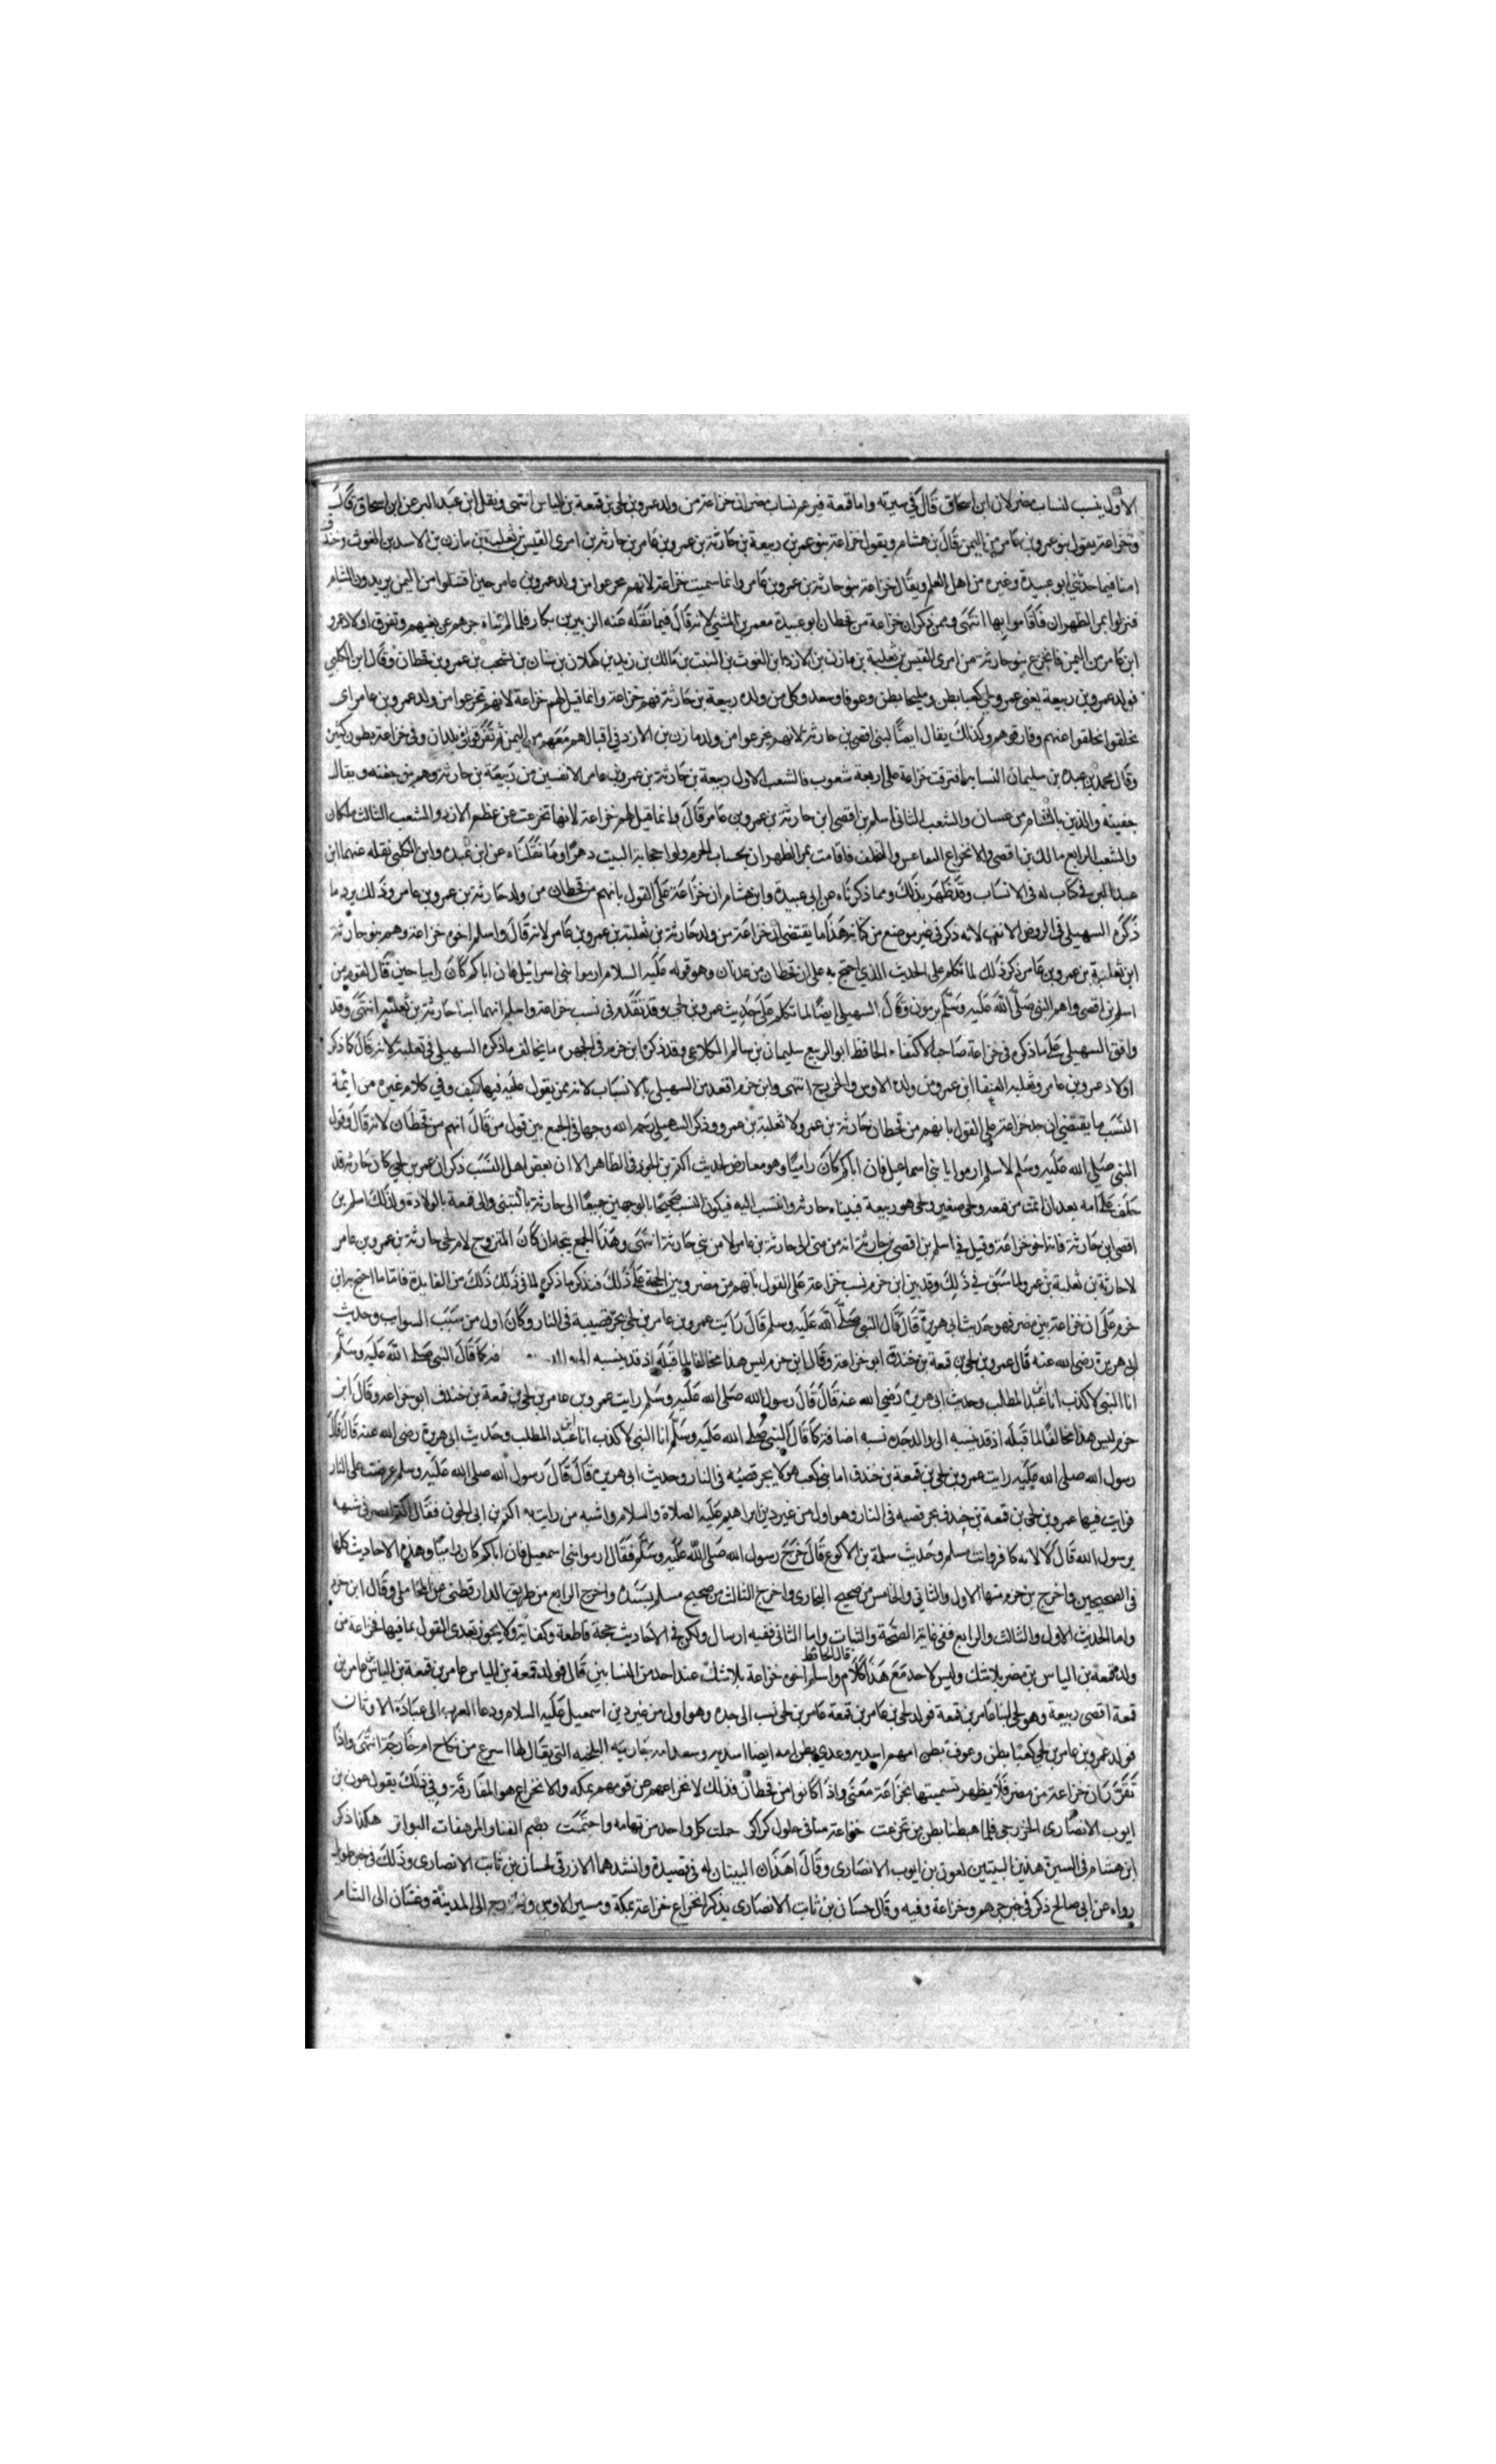 الاول ينسب لنساب مضر لان ابن اسحاق قال في سيرته واما قمعة فيزعم نساب مضر ان خزاعة من ولد عمرو بن لحي بن قمعة بن الياس انتهى ونقل ابن عبد البر عن ابن اسحاق قال
وخزاعة يقول بنو عمرو بن عامر من اليمن قال بن هشام ويقول خزاعة بنو عمرو بن ربيعة بن حارثة بن عمرو بن عامر بن حارثة بن امرى القيس بن ثعلبة بن مازن بن الاسد بن الغوث وخندف
امنا فيما حدثني ابو عبيدة وغيره من اهل العلم ويقال خزاعة بنو حارثة بن عمرو بن عامر وانما سميت خزاعة لانهم من ولد عمرو بن عامر حين اقبلوا من اليمن يريدون الشام
فنزلوا بمر الظهران فاقاموا بها انتهى وممن ذكر ان خزاعة من قحطان ابو عبيدة معمر بن المثنى لانه قال فيما نقله عنه الزبير بن بكار فلما لم تتناه جرهم عن بغيهم وتفرق اولاد عمرو
ابن عامر من اليمن فانخزع بنو حارثة من امرى القيس بن ثعلبة بن مازن بن الازد ابن الغوث بن النبت بن مالك بن زيد بن كهلان بن سبان بن يشجب بن عمرو بن قحطان وقال ابن الكلبي
فولد عمرو بن ربيعة يعني عمرو بن لحي كعبا بطن ومليحا بطن وعوفا وسعد وكل من ولده ربيعة بن حارثة فهم خزاعة وانما قيل لهم خزاعة لانهم تخزعوا من ولد عمرو بن عامر اى
تخلفوا عنهم وفارقوهم وكذلك يقال ايضا لبني اقصى بن حارثة لانهم تخزعوا من ولد مازن بن الازد في اقبالهم معهم من اليمن ثم تفرقوا في البلدان وفي خزاعة بطون كثيرة
وقال محمد بن عبدة بن سليمان النسابة افترقت خزاعة على اربعة شعوب فالشعب الاول ربيعة بن حارثة بن عمرو بن عامر من ربيعة بن حارثة وهم بنو جفنه ويقال
جفينه والذين بالشام من غسان والشعب الثاني اسلم بن اقصى ابن حارثة بن عمرو بن عامر قال وانما قيل لهم خزاعة لانها تخزعت عن عظم الازد والشعب الثالث ملكان
والشعب الرابع مالك بن اقصى والانخزاع التقاعس والتخلف فاقامت بمر الظهران الحرم وولوا حجابة البيت دهرا وما نقلناه عن ابن عبدة وابن الكلبى نقله عنهما ابن
عبد البر في كتاب له في الانساب وقد ظهر بذلك ومما ذكرناه عن ابى عبيدة وابن هشام ان خزاعة على القول بانهم من قحطان من ولد حارثة بن عمرو بن عامر وذلك يرد ما
ذكره السهيلي في الروض الانف لانه ذكر في غير موضع من كتابه هذا ما يقتضي ان خزاعة من ولد حارثة بن ثعلبة بن عمرو بن عامر لانه قال واسلم اخوه خزاعة وهم بنو حارثة
ابن ثعلبة بن عمرو بن عامر ذكر ذلك لما تكلم على الحديث الذي احتج به على ان قحطان من عدنان وهو قوله عليه السلام ارموا بني اسرائيل فان اباكم كان راميا حين قال لقوم من
اسلم بن اقصى واهم النبي صلى الله عليه وسلم يرمون وقال السهيلي ايضا لما تكلم على حديث عمرو بن لحي وقد تقدم في نسب خزاعة واسلم انهما ابنا حارثة بن ثعلبة انتهى وقد
وافق السهيلي على ما ذكره في خزاعة صاحب الاكتفاء الحافظ ابو الربيع سليمان بن سالم الكلاعي وقد ذكره ابن حزم في الجمهرة ما يخالف ما ذكره السهيلي في ثعلبة لانه قال كا ذكر
اولاد عمرو بن عامر وثعلبه العنقا ابن عمرو ومن ولده الاوس والخزرج انتهى وابن حزم اقعد من السهيلي بالانساب لانه ممن يقول عليه فيها كيف وفي كلام غيره من ايمة
النسب ما يقتضي ان جد خزاعة على القول بانهم من قحطان حارثة بن عمرو لا ثعلبة بن عمرو وذكر السهيلي رحمه الله وجها في الجمع بين قول من قال انهم من قحطان لانه قال وقول
النبي صلى الله عليه وسلم لاسلم ارموا يا بني اسماعيل فان اباكم كان راميا وهو معارض لحديث اكثم بن الجون في الظاهر الا ان بعض اهل النسب ذكر ان عمرو بن لحي كان حارثة قد
خلف على امه بعد ان ايمت من قمعه ولحي صغير ولحي هو ربيعة فتبناه حارثة وانتسب اليه فيكون النسب صحيحا بالوجهين جميعا الى حارثة بالتبنى والى قمعة بالولادة وكذلك اسلم بن
اقصى ابن حارثة فانه اخو خزاعة وقيل في اسلم بن اقصى بن حارثة انه من بني ابي حارثة بن عامر لا من بني حارثة انتهى وهذا الجمع يتجه ان كان المتزوج لام لحي حارثة بن عمرو بن عامر
لا حارثة بن ثعلبة بن عمرو لما سبق في ذلك وقد بين ابن حزم نسب خزاعة على القول بانهم من مضر وبين الحجة على ذلك فنذكر ما ذكره لما في ذلك من الفايدة فاما ما احتج به ابن
حزم على ان خزاعة من مضر فهو حديث ابى هريرة قال قال النبي صلى الله عليه وسلم قال رايت عمرو بن عامر بن لحي يجر قصبه في النار وكان اول من سيب السوايب وحديث
ابى هريرة رضى الله عنه قال عمرو بن لحي بن قمعة بن خندف ابو خزاعة وقال ابن حزم ليس هذا مخالفا لما قبله اذ قد ينسبه قال النبي صلى الله عليه وسلم
انا النبي لا كذب انا ابن عبد المطلب وحديث ابى هريرة رضي الله عنه قال قال رسول الله صلى الله عليه وسلم رايت عمرو بن عامر بن لحي بن قمعة بن خندف ابو خزاعة وقال ابن
حزم ليس هذا مخالفا لما قبله اذ قد ينسبه الى والد جده نسبه اضافة كما قال النبي صلى الله عليه وسلم انا النبي لا كذب انا ابن عبد المطلب وحديث ابى هريرة رضى الله عنه قال قال
رسول الله صلى الله عليه رايت عمرو بن لحي بن قمعة بن خندف ابا بني كعب هولا يجر قصبه في النار وحديث ابى هريرة قال قال رسول الله صلى الله عليه وسلم عرضت على النار
فرايت فيها عمرو بن لحي بن قمعة بن خندف يجر قصبه في النار وهو اول من غير دين ابراهيم عليه الصلاة والسلام واشبه من رايت به اكثم بن ابى الجون فقال اكثم شبهه
يرسول الله قال لا لانه كافر وانت مسلم وحديث سلمة بن الاكوع قال خرج رسول الله صلى الله عليه وسلم فقال ارموا بني اسمعيل فان اباكم كان راميا وهذه الاحاديث كلها
في الصحيحين واخرج بن حزم منها الاول والثاني والخامس من صحيح البخارى واخرج الثالث من صحيح مسلم بسنده واخرج الرابع من طريق الدارقطني عن المحاملى وقال ابن حزم
واما الحديث الاول والثالث والرابع ففي غاية الصحة والثبات واما الثاني ففيه ارسال ولكن في الاحاديث حجة قاطعة وكفاية ولا يجوز تعدى القول بما فيها فخزاعة من
قال الحافظ
ولد قمعة بن الياس بن مضر بلا شك وليس لاحد مع هذا كلام واسلم اخوه خزاعة بلا شك عند احد من النسابين قال فولد قمعة بن الياس عامر بن قمعة بن الياس عامر بن
قمعة اقصى ربيعة وهو لحي ابنا عامر بن قمعة فولد لحي بن عامر بن قمعة عامر بن لحي نسب الى جده وهو اول من غير دين اسمعيل عليه السلام ودعا العرب الى عبادة الاوثان
فولد عمرو بن عامر بن لحي كعبا بطن وعوف بطن امهم وعدي بطن امه ايضا التي يقال لها اسرع من نكاح ام خارجة انتهى واذا
تقرر بان خزاعة من مضر فلا يظهر تسميتها بخزاعة معنى واذا كانوا من قحطان فذلك لانخزاعهم عن قومهم بمكه والانخزاع هو المفارقة وفي ذلك يقول عون بن
ايوب الانصارى الخزرجى فلما هبطنا بطن مر تخزعت خزاعة منا في حلول كراكر حمت كل واحد من تهامه واحتمت بصم القنا والمرهفات البواتر هكذا ذكر
ابن هشام في السيرة هذين البيتين لعون بن ايوب الانصارى وقال هذان البيتان له في قصيدة وانشدهما الازرقي لحسان بن ثابت الانصارى وذلك في خبر طويل
رواه عن ابى صالح ذكر في خبر جرهم وخزاعة وفيه وقال حسان بن ثابت الانصارى يذكر انخزاع خزاعة بمكة ومسير الاوس والخزرج الى المدينة وغسان الى الشام